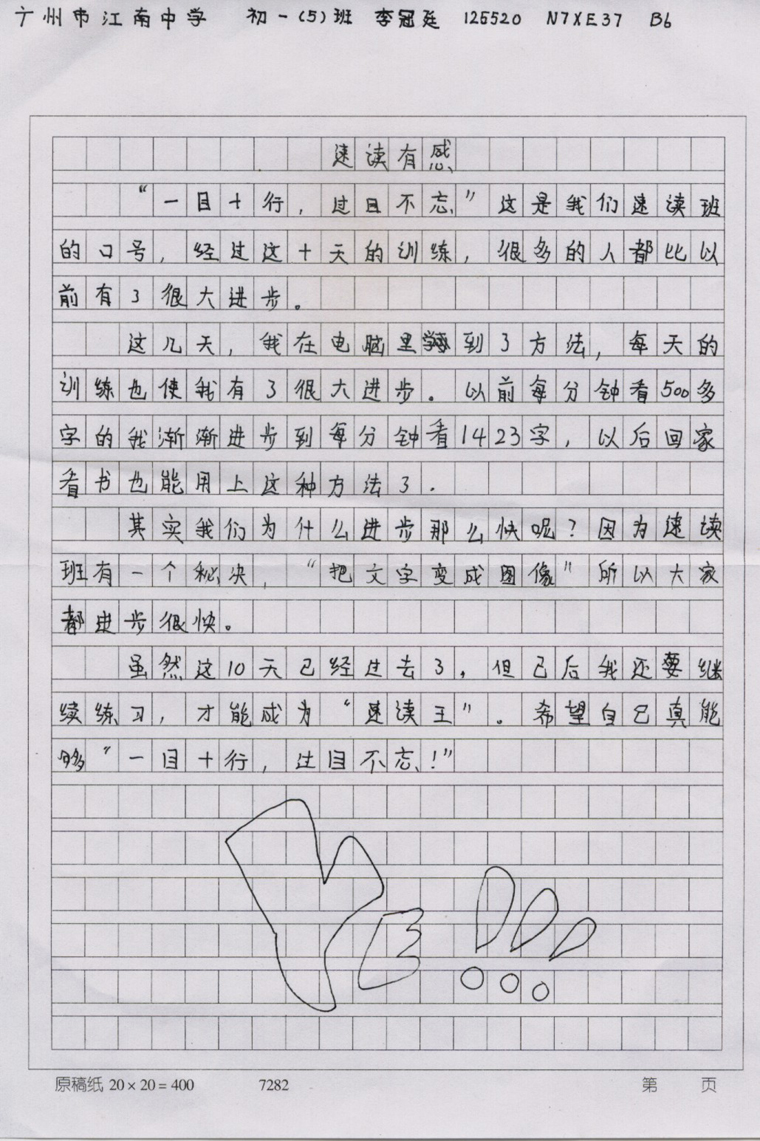 广州市江南中学 初一(5)班 李冠廷 125520 N7XE37 B6
速读有感
“一目十行，过目不忘”这是我们速读班
的口号，经过这十天的训练，很多的人都比以
前有了很大进步。
这几天，我在电脑里学到了方法，每天的
训练也使我有了很大进步。以前每分钟看500多
字的我渐渐进步到每分钟看1423字，以后回家
看书也能用上这种方法了.
其实我们为什么进步那么快呢？因为速读
班有一个秘决，“把文字变成图像”所以大家
都进步很快。
虽然这10天已经过去了，但已后我还要继
续练习，才能成为“速读王”。希望自己真能
够“一目十行，过目不忘！”
YE!!!
原稿纸 20×20=400 7282 第 页